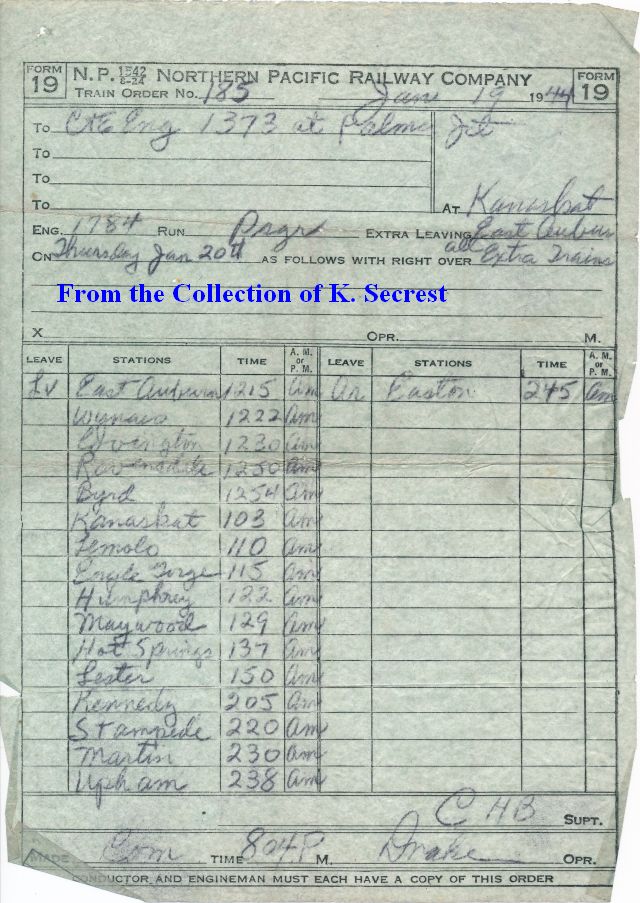 FORM 19 N.P. 1542 6-24 NORTHERN PACIFIC RAILWAY COMPANY FORM 19
TRAIN ORDER No. 185 Jan 19 1944
To C&E Eng 1373 at Palmer Jct
To
To
To AT Kanaskat
ENG. 1784 RUN Psgr EXTRA LEAVING East Auburn
ON Thursday Jan 20th AS FOLLOWS WITH RIGHT OVER all Extra Trains
From the Collection of K. Secrest
X OPR. M.
LEAVE STATIONS TIME A. M. or P. M. LEAVE STATIONS TIME A. M. or P. M.
Lv East Auburn 1215 Am Ar Easton 245 Am
Wynaco 1222 Am
Covington 1230 Am
Ravensdale 1250 Am
Byrd 1254 Am
Kanaskat 103 Am
Lemolo 110 Am
Eagle Gorge 115 Am
Humphrey 122 Am
Maywood 129 Am
Hot Springs 137 Am
Lester 150 Am
Kennedy 205 Am
Stampede 220 Am
Martin 230 Am
Upham 238 Am
C H B SUPT.
MADE Com TIME 804 P. M. Drake OPR.
CONDUCTOR AND ENGINEMAN MUST EACH HAVE A COPY OF THIS ORDER